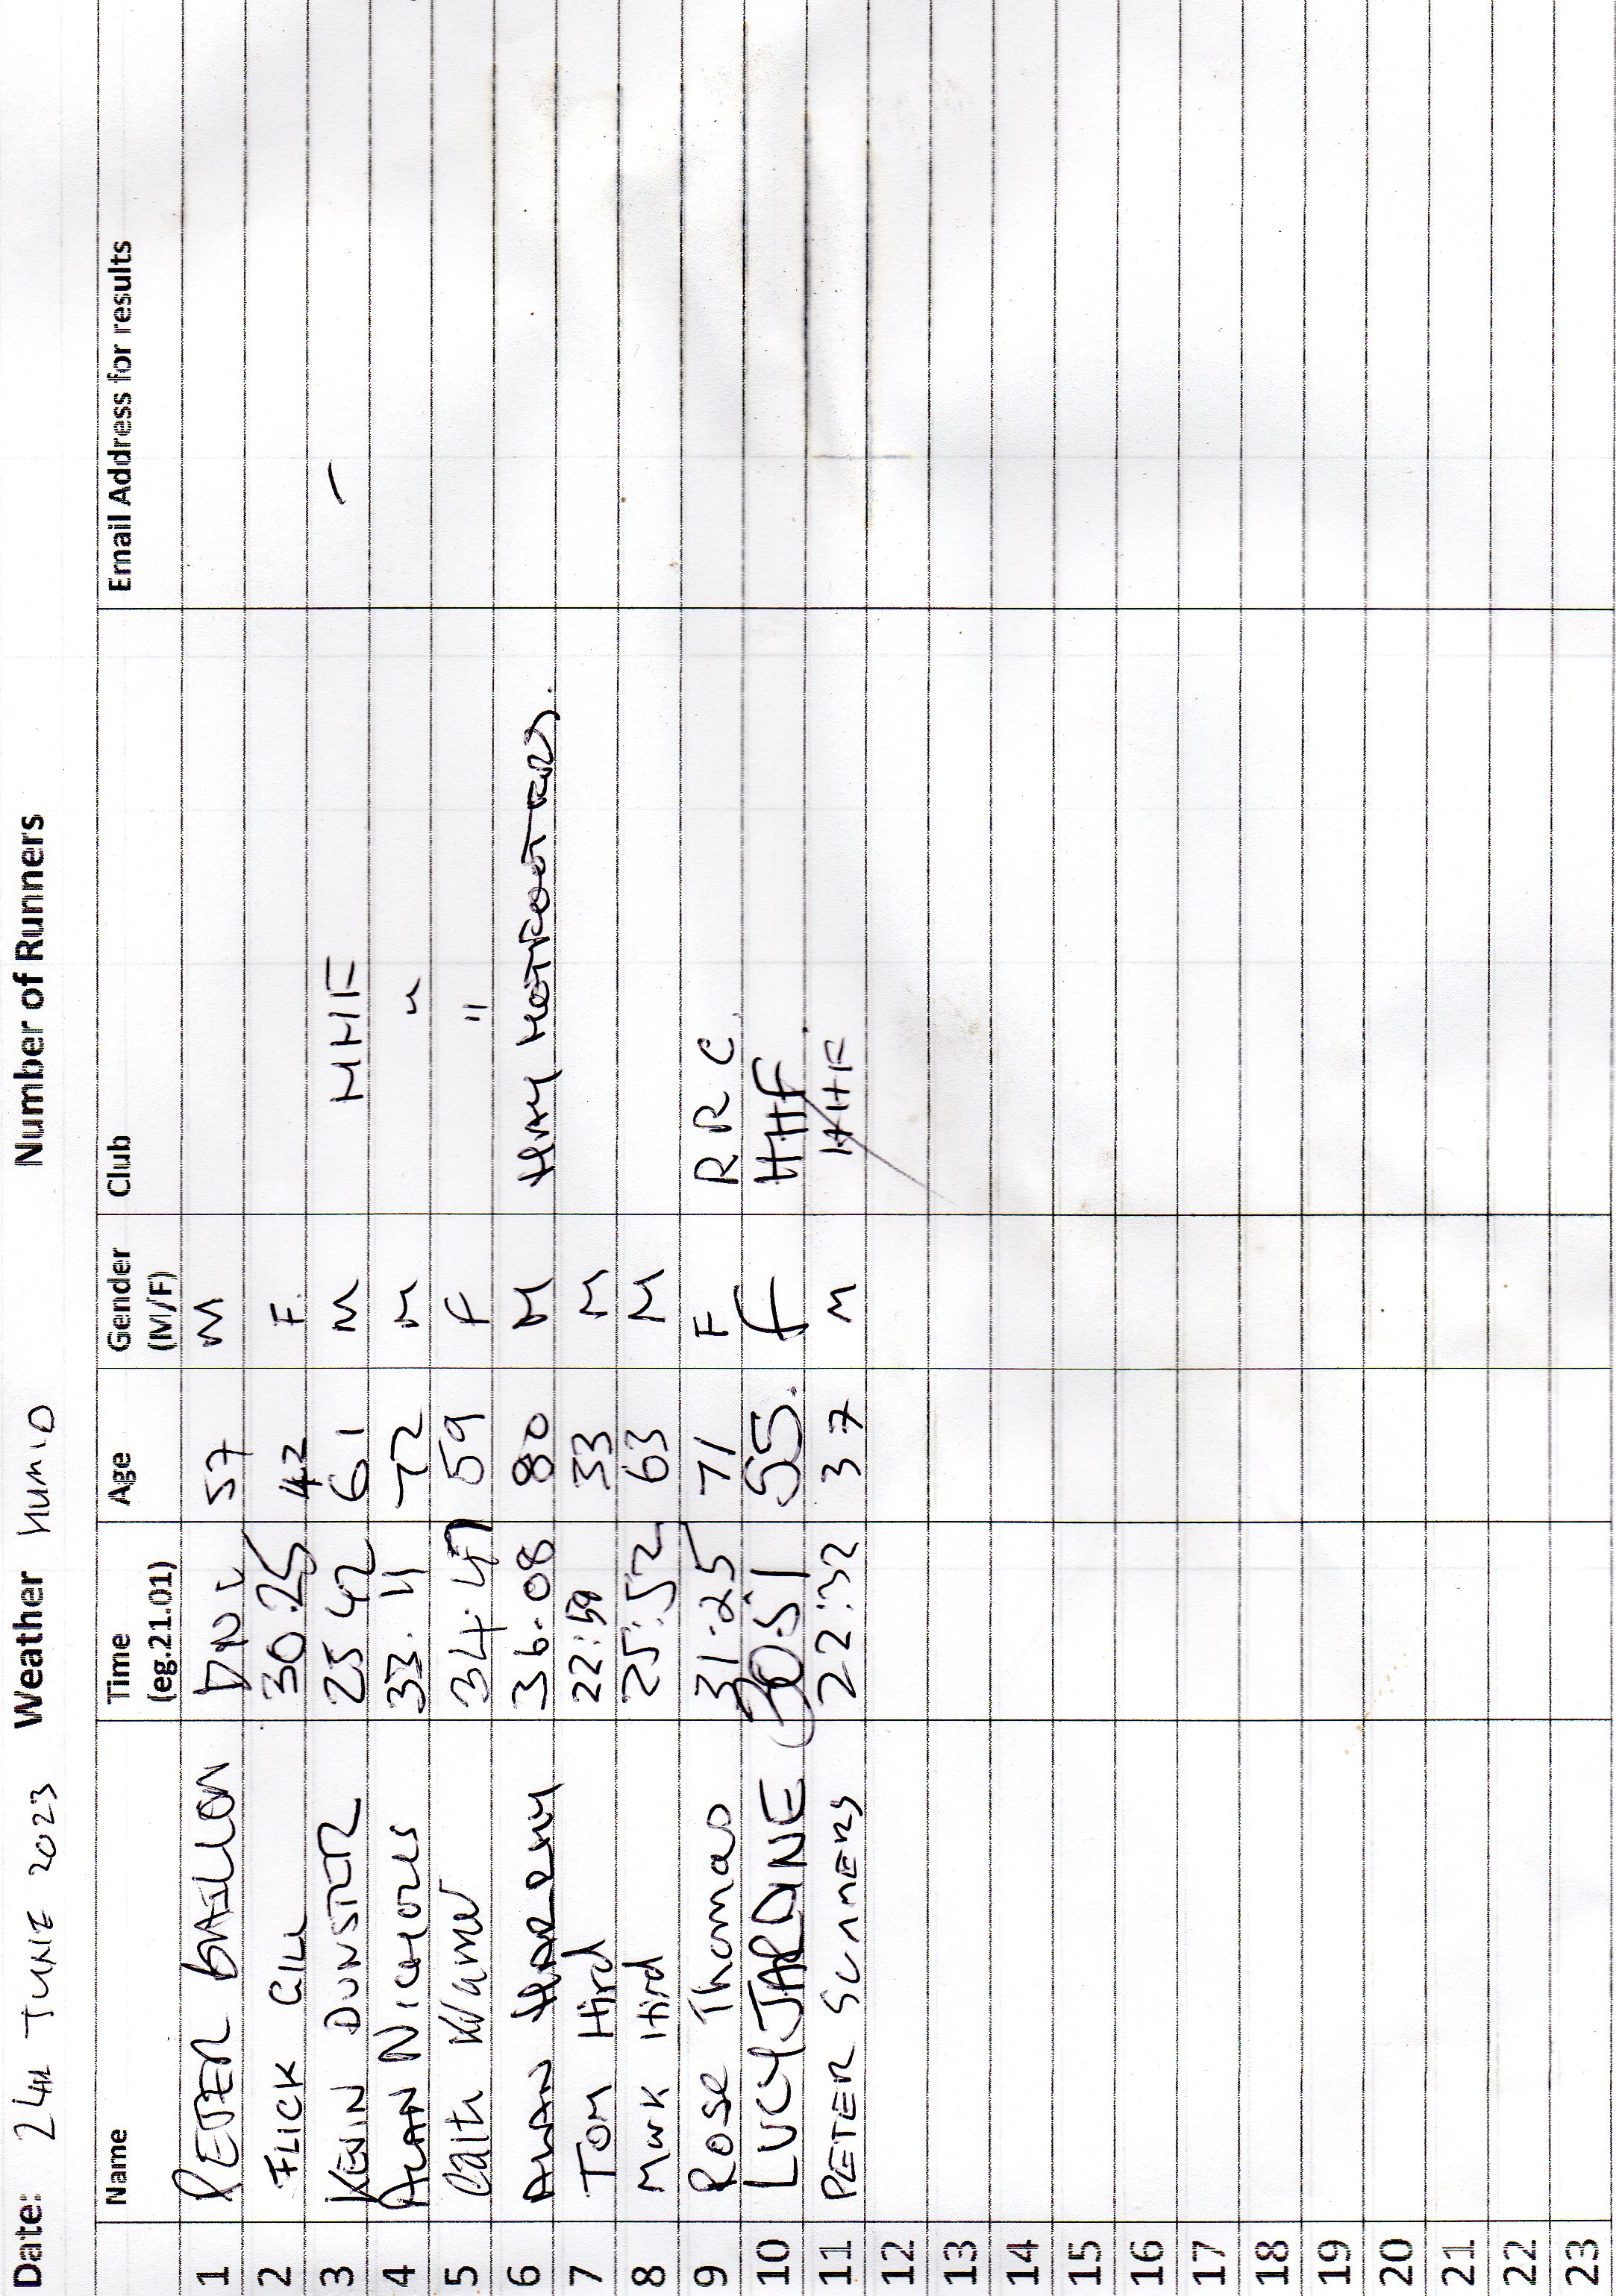 Date: 24th JUNE 2023 Weather HUMID Number of Runners
Name Time (eg.21.01) Age Gender (M/F) Club Email Address for results
1 PETER 57 M
2 FLICK GILL 30:25 42 F.
3 KEVIN DUNSTER 25 42 61 M HHF –
4 ALAN NICHOLLS 33. 11 72 M "
5 Cath 34:47 59 F "
6 ALLAN 36.08 80 M HAY HOTFOOTERS.
7 TOM Hird 22:59 33 M
8 Mark Hird 25:52 63 M
9 Rose Thomas 31:25 71 F R R C
10 LUCY JARDINE 30:51 55. F HHF.
11 PETER SUMMERS 22:32 37 M HHF
12
13
14
15
16
17
18
19
20
21
22
23